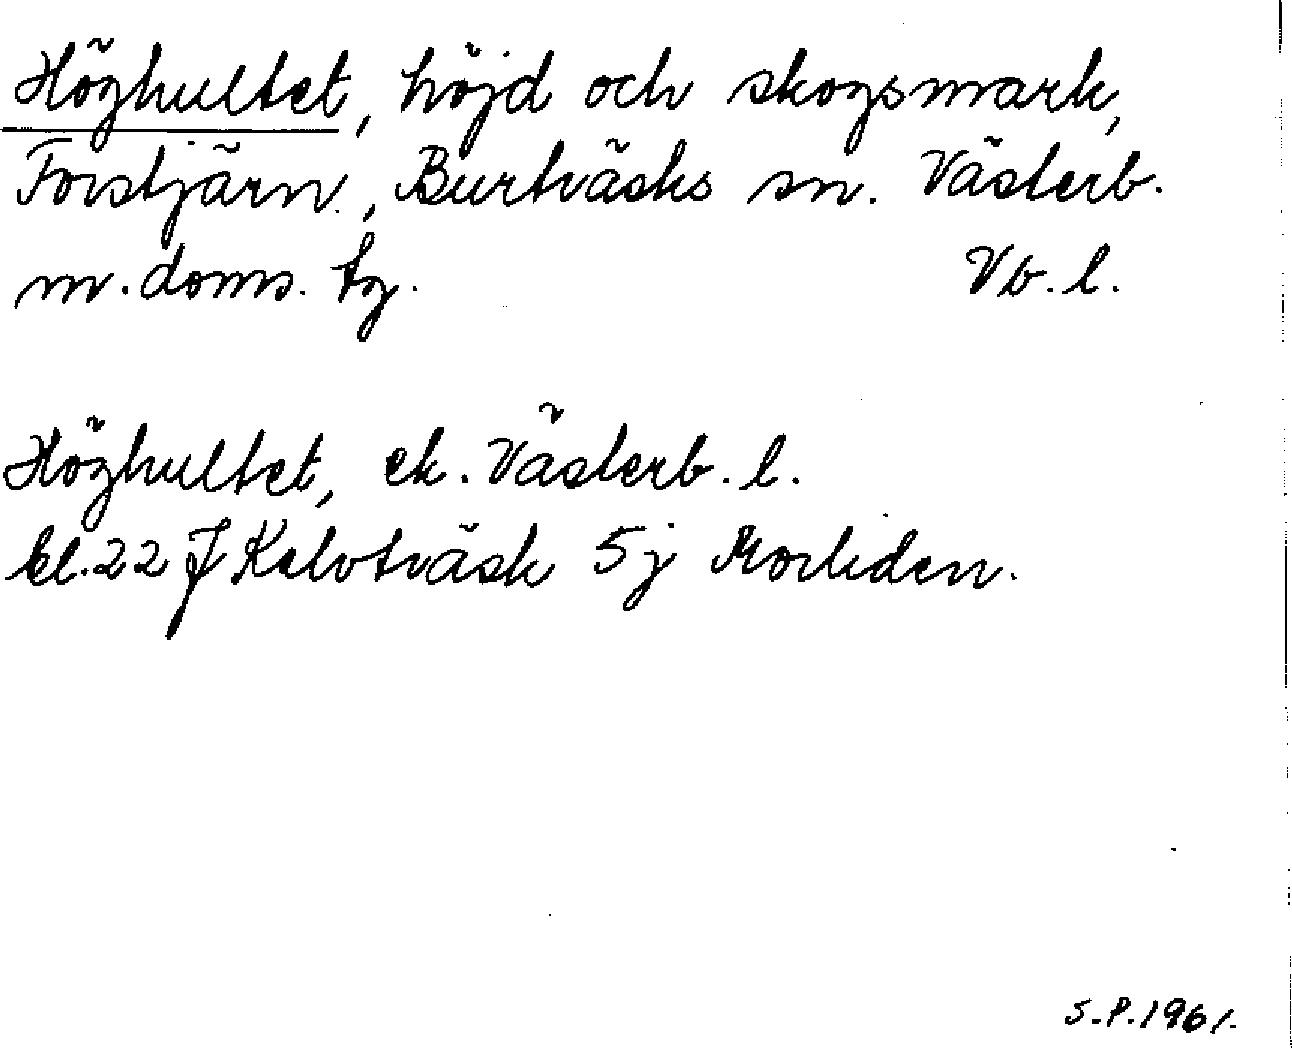 Höghultet, höjd och skogsmark,
Forstjärn, Burträsks sn. Västerb.
m. doms. tg. Vb. l.
Höghultet, ek. Västerb. l.
bl. 22 J Kalvträsk 5j Morliden.
S.P. 1961.